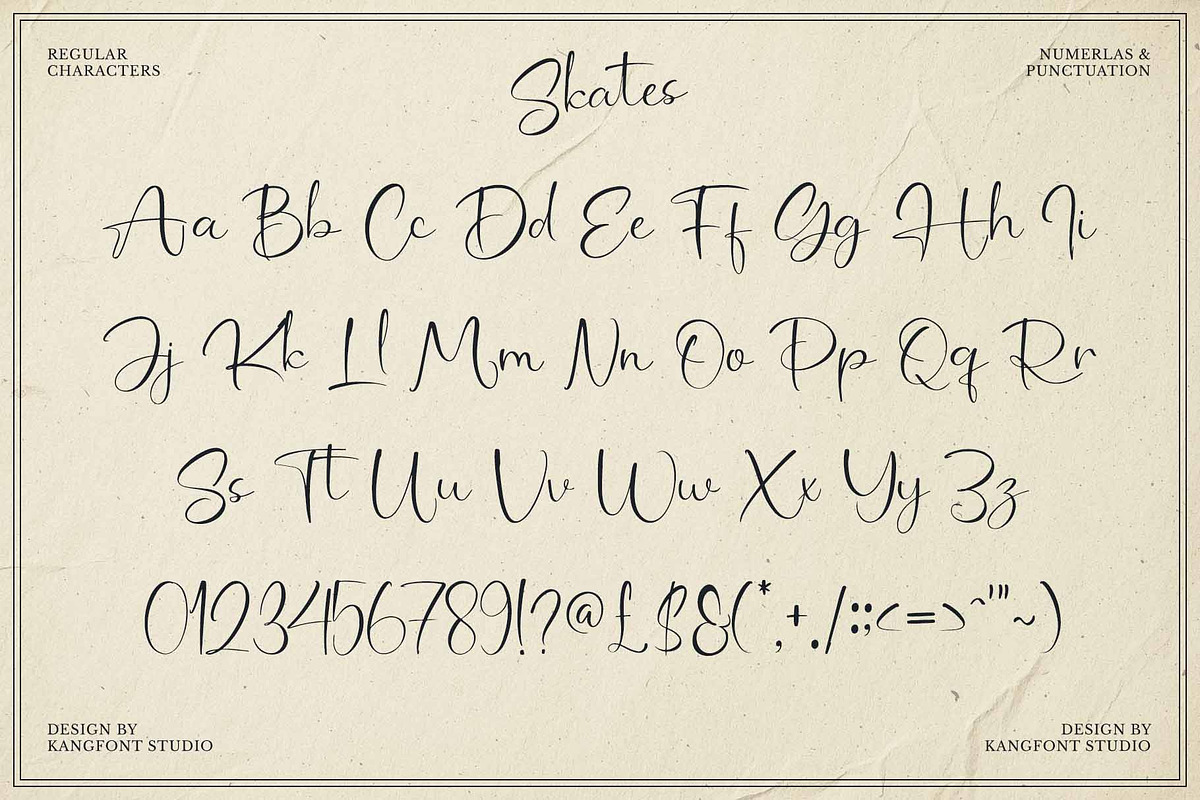 REGULAR
CHARACTERS
NUMERLAS &
PUNCTUATION
Skates
Aa Bb Cc Dd Ee Ff Gg Hh Ii
Jj Kk Ll Mm Nn Oo Pp Qq Rr
Ss Tt Uu Vv Ww Xx Yy Zz
0123456789!?@£$&(*,+./:;<=>^'"~)
DESIGN BY
KANGFONT STUDIO
DESIGN BY
KANGFONT STUDIO